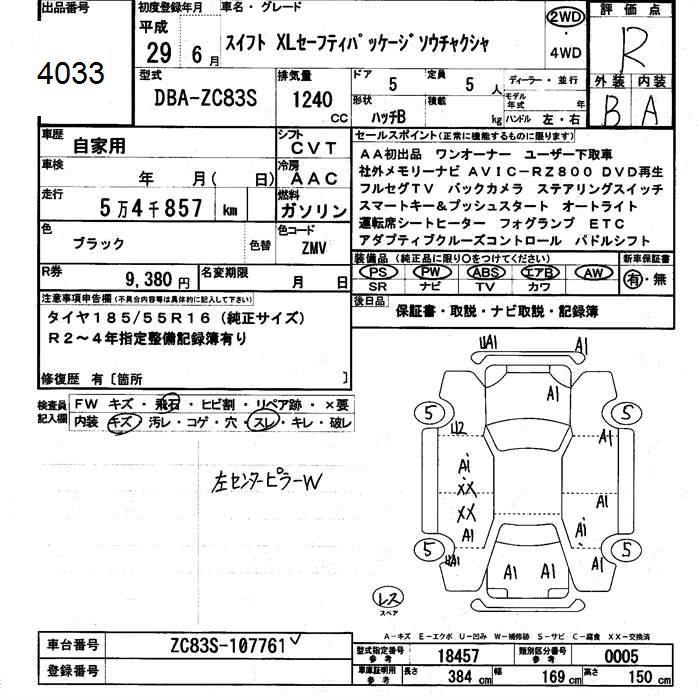 出品番号
4033
初度登録年月
平成
29年6月
車名・グレード
スイフト XLセーフティパッケージソウチャクシャ
2WD
・
4WD
評価点
R
外装 内装
B A
型式
DBA-ZC83S
排気量
1240
CC
ドア
5
定員
5
人
ディーラー・並行
形状
ハッチB
積載
kg
モデル年式
年
ハンドル 左・右
車歴
自家用
シフト
CVT
車検
年 月( 日)
冷房
AAC
走行
5万4千857 km
燃料
ガソリン
色
ブラック
色替
色コード
ZMV
R券
9,380円
名変期限
月 日
セールスポイント(正常に機能するものに限ります)
AA初出品 ワンオーナー ユーザー下取車
社外メモリーナビ AVIC-RZ800 DVD再生
フルセグTV バックカメラ ステアリングスイッチ
スマートキー&プッシュスタート オートライト
運転席シートヒーター フォグランプ ETC
アダプティブクルーズコントロール パドルシフト
装備品(純正品に限り○をつけてください)
PS PW ABS エアB AW
SR ナビ TV カワ
新車保証書
有・無
後日品
保証書・取説・ナビ取説・記録簿
注意事項申告欄(不具合内容等は具体的に記入して下さい)
タイヤ185/55R16(純正サイズ)
R2~4年指定整備記録簿有り
修復歴 有〔箇所 〕
検査員
記入欄
FW キズ・飛石・ヒビ割・リペア跡・×要
内装 キズ・汚レ・コゲ・穴・スレ・キレ・破レ
左センターピラーW
UA1 A1
A1
5 5
U2 A1
A1
XX
XX A1
A1 A1
5 5
UA1 A1
A1 A1
レス
スペア
A-キズ E-エクボ U-凹み W-補修跡 S-サビ C-腐食 XX-交換済
車台番号
ZC83S-107761
登録番号
型式指定番号
参考
18457
類別区分番号
参考
0005
車庫証明用
参考
長さ
384 cm
幅
169 cm
高さ
150 cm